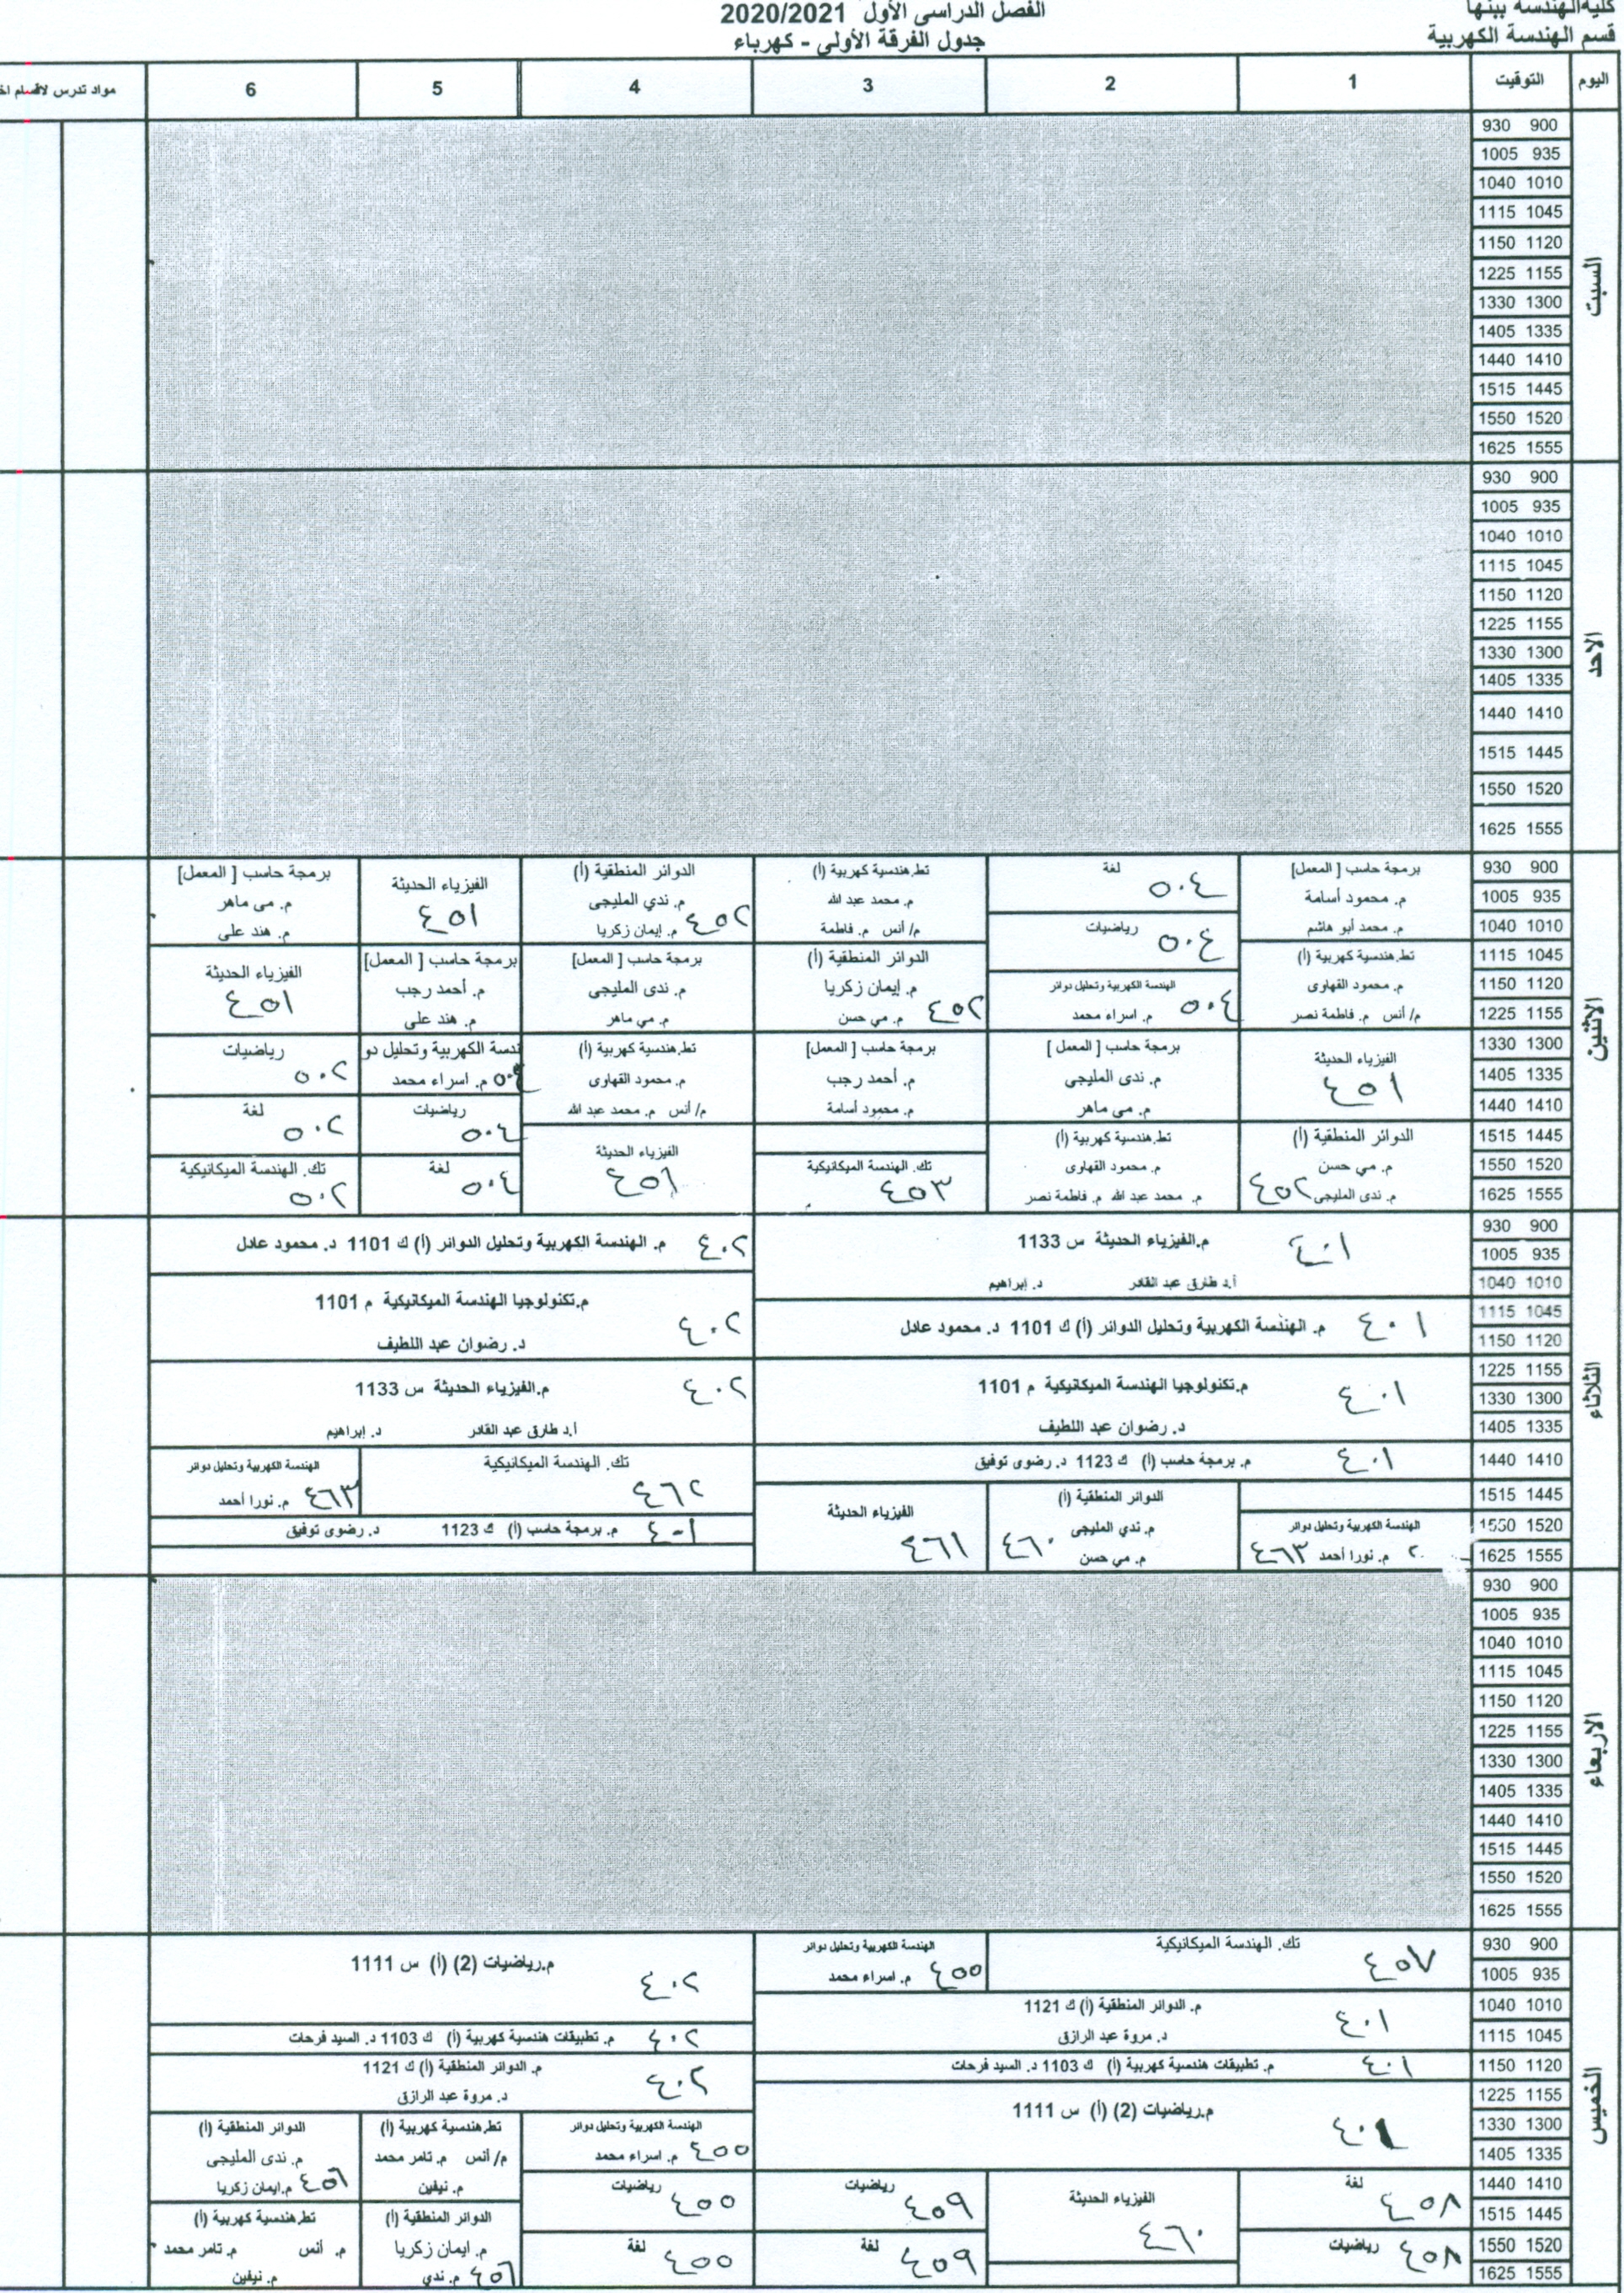 كلية الهندسة ببنها
الفصل الدراسى الأول 2020/2021
قسم الهندسة الكهربية
جدول الفرقة الأولى - كهرباء
اليوم التوقيت 1 2 3 4 5 6 مواد تدرس لاقسام اخ
السبت
930 900
1005 935
1040 1010
1115 1045
1150 1120
1225 1155
1330 1300
1405 1335
1440 1410
1515 1445
1550 1520
1625 1555
الاحد
930 900
1005 935
1040 1010
1115 1045
1150 1120
1225 1155
1330 1300
1405 1335
1440 1410
1515 1445
1550 1520
1625 1555
الاثنين
930 900
1005 935
1040 1010
1115 1045
1150 1120
1225 1155
1330 1300
1405 1335
1440 1410
1515 1445
1550 1520
1625 1555
برمجة حاسب [ المعمل]
م. محمود أسامة
م. محمد أبو هاشم
تط.هندسية كهربية (أ)
م. محمود القهاوى
م/ أنس م. فاطمة نصر
الفيزياء الحديثة
٤٥١
الدوائر المنطقية (أ)
م. مي حسن
م. ندى المليجى ٤٥٢
لغة
٥٠٤
رياضيات
٥٠٤
الهندسة الكهربية وتحليل دوائر
م. اسراء محمد ٥٠٤
برمجة حاسب [ المعمل ]
م. ندى المليجى
م. مى ماهر
تط.هندسية كهربية (أ)
م. محمود القهاوى
م. محمد عبد الله م. فاطمة نصر
تط.هندسية كهربية (أ)
م. محمد عبد الله
م/ أنس م. فاطمة
الدوائر المنطقية (أ)
م. إيمان زكريا
م. مي حسن ٤٥٢
برمجة حاسب [ المعمل]
م. أحمد رجب
م. محمود أسامة
تك. الهندسة الميكانيكية
٤٥٣
الدوائر المنطقية (أ)
م. ندي المليجى
م. إيمان زكريا ٤٥٢
برمجة حاسب [ المعمل]
م. ندى المليجى
م. مي ماهر
تط.هندسية كهربية (أ)
م. محمود القهاوى
م/ أنس م. محمد عبد الله
الفيزياء الحديثة
٤٥١
الفيزياء الحديثة
٤٥١
برمجة حاسب [ المعمل]
م. أحمد رجب
م. هند على
ندسة الكهربية وتحليل دو
م. اسراء محمد ٥٠٤
رياضيات
٥٠٤
لغة
٥٠٤
برمجة حاسب [ المعمل]
م. مى ماهر
م. هند على
الفيزياء الحديثة
٤٥١
رياضيات
٥٠٢
لغة
٥٠٢
تك. الهندسة الميكانيكية
٥٠٢
الثلاثاء
930 900
1005 935
1040 1010
1115 1045
1150 1120
1225 1155
1330 1300
1405 1335
1440 1410
1515 1445
1550 1520
1625 1555
م.الفيزياء الحديثة س 1133 ٤٠١
أ.د طارق عبد القادر د. إبراهيم
م. الهندسة الكهربية وتحليل الدوائر (أ) ك 1101 د. محمود عادل ٤٠١
م.تكنولوجيا الهندسة الميكانيكية م 1101 ٤٠١
د. رضوان عبد اللطيف
م. برمجة حاسب (أ) ك 1123 د. رضوى توفيق ٤٠١
الهندسة الكهربية وتحليل دوائر
م. نورا أحمد ٤٦٣
الدوائر المنطقية (أ)
م. ندي المليجى
م. مي حسن ٤٦٠
الفيزياء الحديثة
٤٦١
م. الهندسة الكهربية وتحليل الدوائر (أ) ك 1101 د. محمود عادل ٤٠٢
م.تكنولوجيا الهندسة الميكانيكية م 1101 ٤٠٢
د. رضوان عبد اللطيف
م.الفيزياء الحديثة س 1133 ٤٠٢
أ.د طارق عبد القادر د. إبراهيم
تك. الهندسة الميكانيكية
٤٦٢
الهندسة الكهربية وتحليل دوائر
م. نورا أحمد ٤٦٣
م. برمجة حاسب (أ) ك 1123 د. رضوى توفيق ٤٠١
الاربعاء
930 900
1005 935
1040 1010
1115 1045
1150 1120
1225 1155
1330 1300
1405 1335
1440 1410
1515 1445
1550 1520
1625 1555
الخميس
930 900
1005 935
1040 1010
1115 1045
1150 1120
1225 1155
1330 1300
1405 1335
1440 1410
1515 1445
1550 1520
1625 1555
تك. الهندسة الميكانيكية
٤٥٧
الهندسة الكهربية وتحليل دوائر
م. اسراء محمد ٤٥٥
م. الدوائر المنطقية (أ) ك 1121 ٤٠١
د. مروة عبد الرازق
م. تطبيقات هندسية كهربية (أ) ك 1103 د. السيد فرحات ٤٠١
م.رياضيات (2) (أ) س 1111
٤٠١
لغة
٤٥٨
رياضيات ٤٥٨
الفيزياء الحديثة
٤٦٠
رياضيات
٤٥٩
لغة
٤٥٩
م.رياضيات (2) (أ) س 1111
٤٠٢
م. تطبيقات هندسية كهربية (أ) ك 1103 د. السيد فرحات ٤٠٢
م. الدوائر المنطقية (أ) ك 1121
د. مروة عبد الرازق ٤٠٢
الهندسة الكهربية وتحليل دوائر
م. اسراء محمد ٤٥٥
رياضيات
٤٥٥
لغة
٤٥٥
تط.هندسية كهربية (أ)
م/ أنس م. تامر محمد
م. نيفين
الدوائر المنطقية (أ)
م. ايمان زكريا
م. ندي ٤٥٦
الدوائر المنطقية (أ)
م. ندى المليجى
م.ايمان زكريا ٤٥٦
تط.هندسية كهربية (أ)
م. أنس م. تامر محمد
م. نيفين